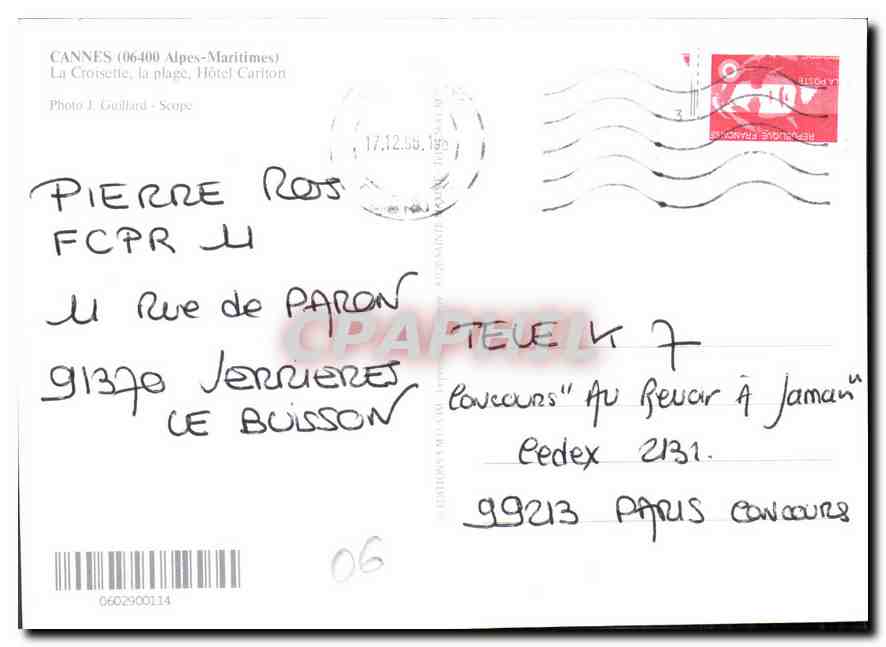 CANNES (06400 Alpes-Maritimes)
La Croisette, la plage, Hôtel Carlton
Photo J. Guillard - Scope
LA POSTE
REPUBLIQUE FRANÇAISE
17.12.
3
PIERRE ROS
FCPR 11
11 Rue de PARON
91370 VERRIERES
LE BUISSON
CPAPHIL
TELE K 7
CONCOURS "AU Revoir À Jamais"
Cedex 2131.
99213 PARIS CONCOURS
06
0602900114